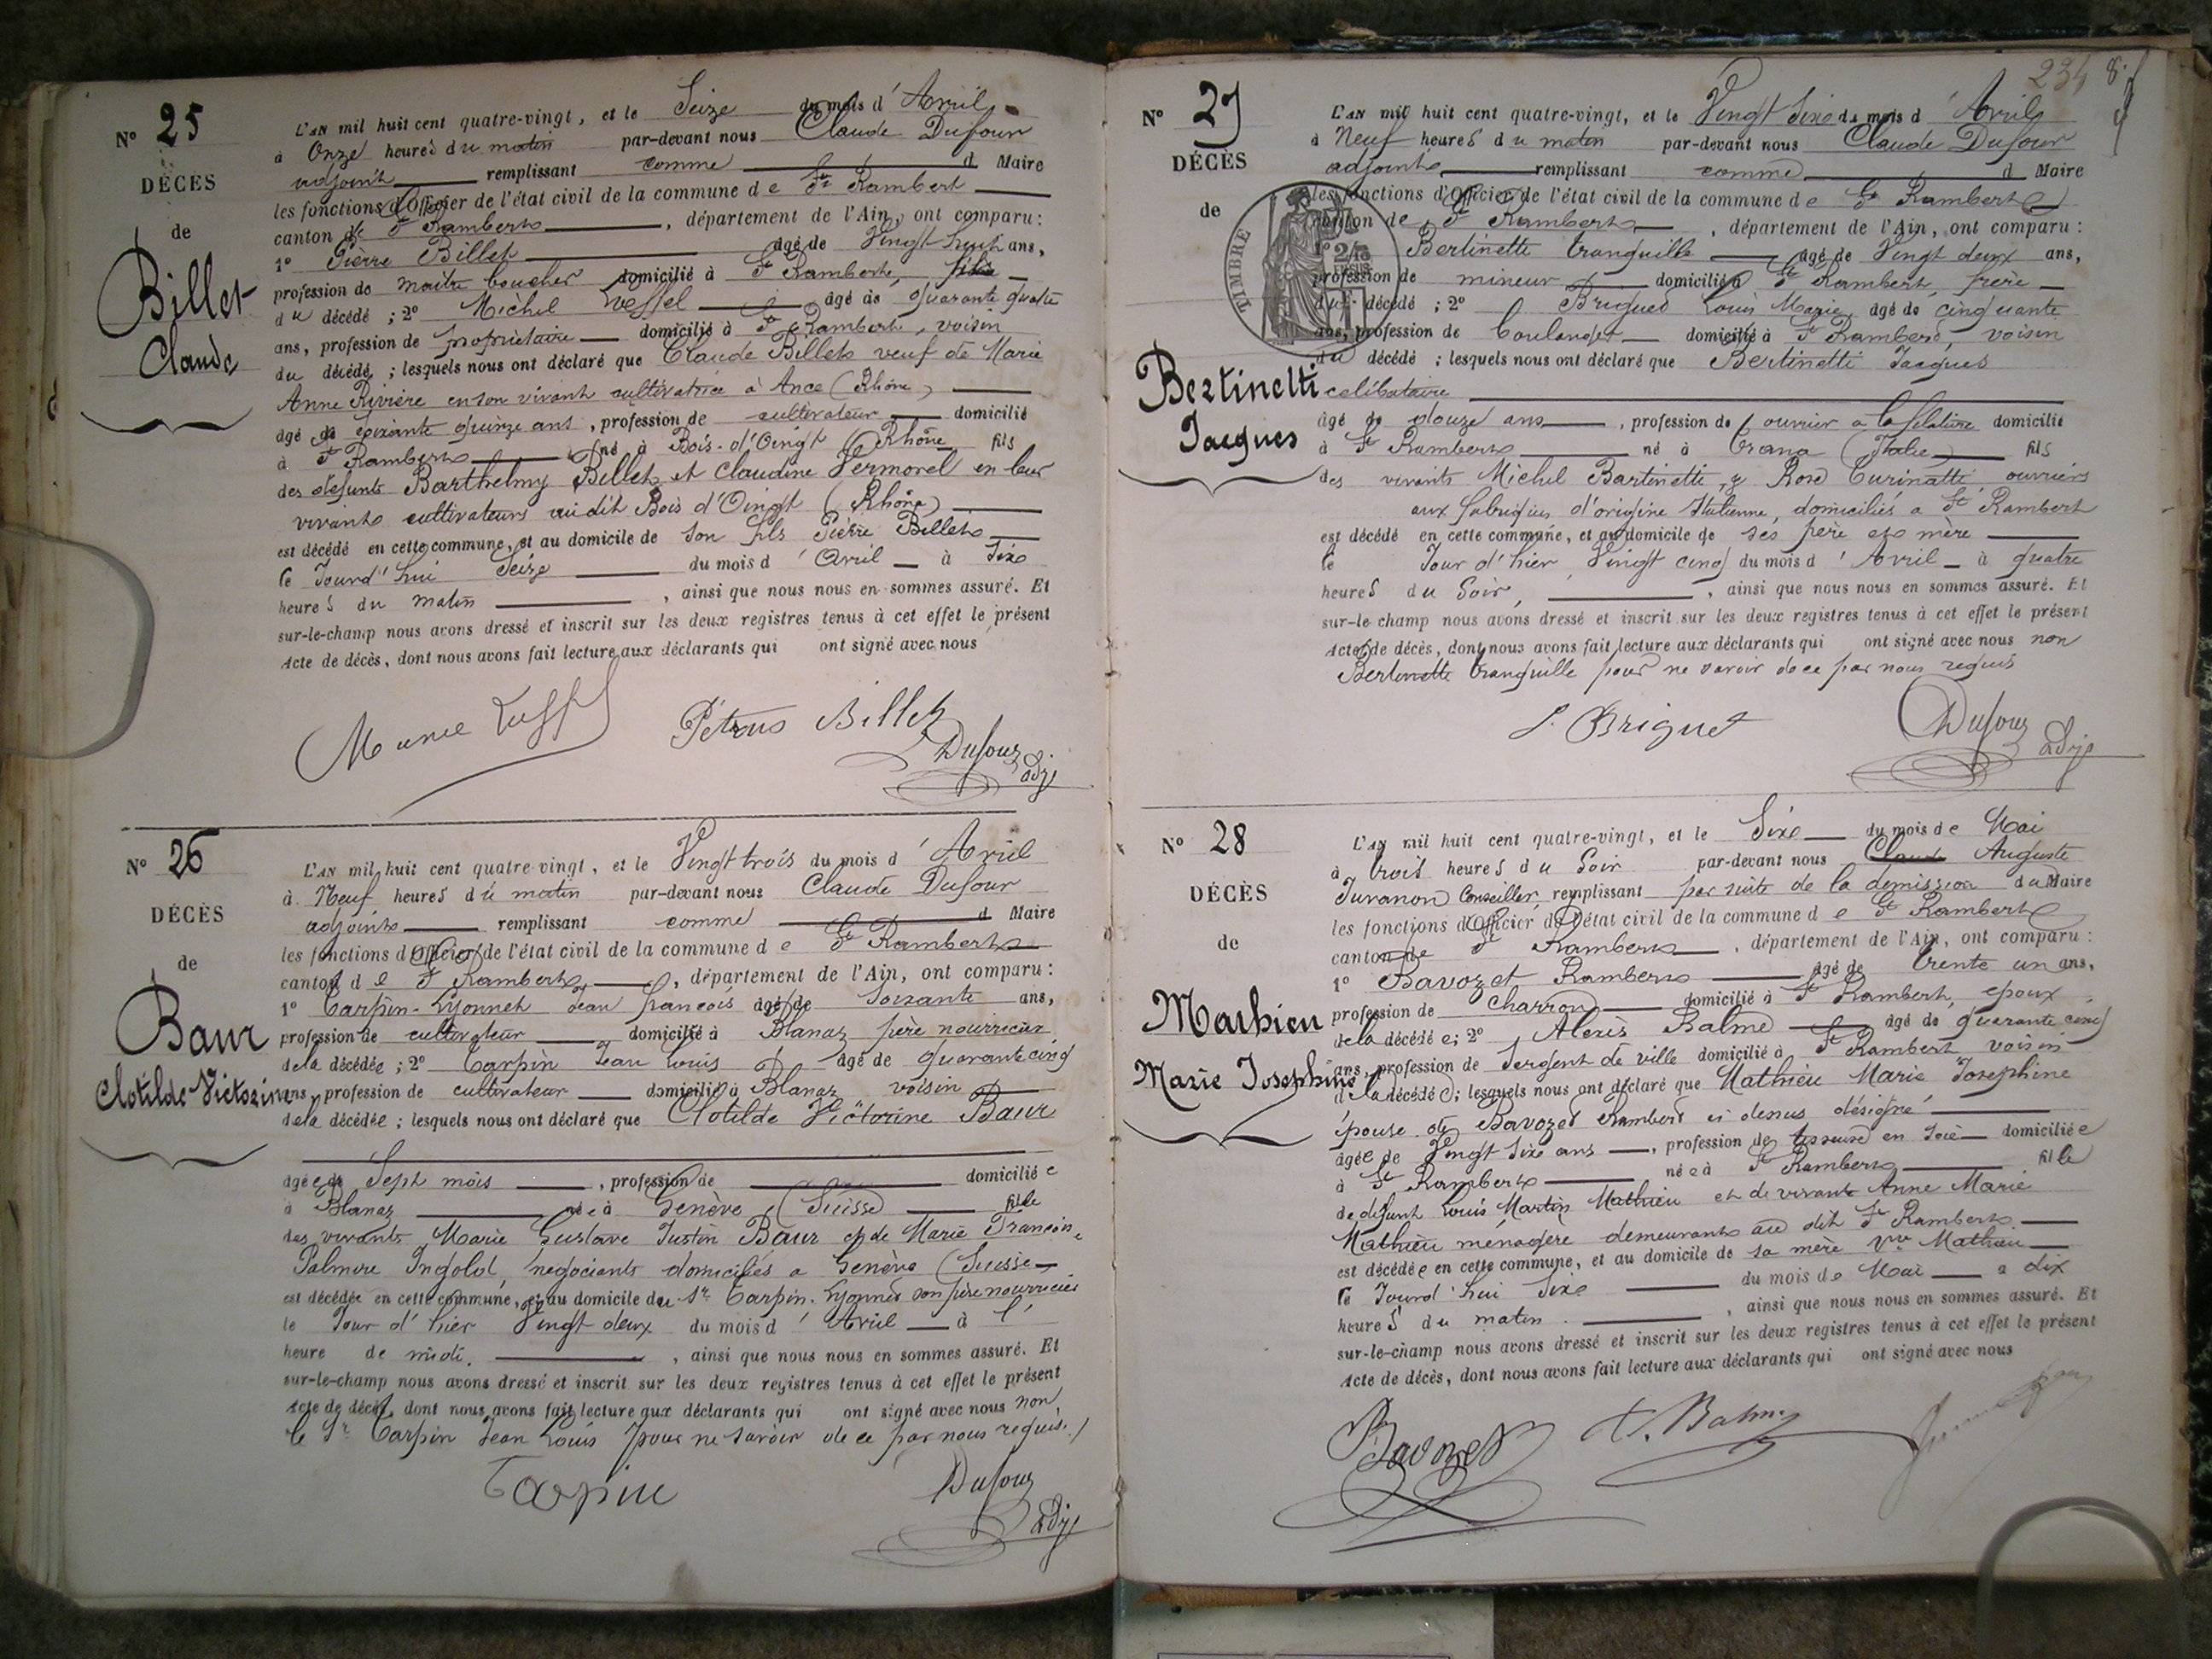 N° 25
DÉCÈS
de
Billet
Claude
L'AN mil huit cent quatre-vingt, et le Seize du mois d'Avril
à Onze heures du matin par-devant nous Claude Dufour
adjoint remplissant comme d Maire
les fonctions d'Officier de l'état civil de la commune de St Rambert
canton de St Rambert, département de l'Ain, ont comparu :
1° Pierre Billet âgé de Vingt huit ans,
profession de maitre boucher domicilié à St Rambert, fils
du décédé ; 2° Michel âgé de quarante quatre
ans, profession de propriétaire domicilié à St Rambert, voisin
du décédé ; lesquels nous ont déclaré que Claude Billet veuf de Marie
Anne Rivière en son vivant cultivatrice à Ance (Rhône)
âgé de soixante quinze ans, profession de cultivateur domicilié
à St Rambert né à Bois-d'Oingt (Rhône fils
des défunts Barthelmy Billet et Claudine Vermorel en leur
vivants cultivateurs au dit Bois d'Oingt (Rhône)
est décédé en cette commune, et au domicile de son fils Pierre Billet
le Jourd'hui Seize du mois d'Avril à Six
heures du matin, ainsi que nous nous en sommes assuré. Et
sur-le-champ nous avons dressé et inscrit sur les deux registres tenus à cet effet le présent
Acte de décès, dont nous avons fait lecture aux déclarants qui ont signé avec nous
Pétrus Billet
Dufour
adj
N° 26
DÉCÈS
de
Baur
Clotilde Victorine
L'AN mil huit cent quatre-vingt, et le Vingt trois du mois d'Avril
à Neuf heures du matin par-devant nous Claude Dufour
adjoint remplissant comme d Maire
les fonctions d'Officier de l'état civil de la commune de St Rambert
canton de St Rambert, département de l'Ain, ont comparu :
1° Carpin-Lyonnet Jean françois âgé de soixante ans,
profession de cultivateur domicilié à Blanaz père nourricier
de la décédée ; 2° Carpin Jean Louis âgé de quarante cinq
ans, profession de cultivateur domicilié à Blanaz voisin
de la décédée ; lesquels nous ont déclaré que Clotilde Victorine Baur
âgée de Sept mois, profession de domiciliée
à Blanaz née à Genève (Suisse) fille
des vivants Marie Gustave Justin Baur et de Marie Françoise
Palmire Ingold, négociants domiciliés a Genève (Suisse
est décédée en cette commune, et au domicile du Sr Carpin-Lyonnet son père nourricier
le Jour d'hier Vingt deux du mois d'Avril à l'
heure de midi, ainsi que nous nous en sommes assuré. Et
sur-le-champ nous avons dressé et inscrit sur les deux registres tenus à cet effet le présent
Acte de décès, dont nous avons fait lecture aux déclarants qui ont signé avec nous non
le Sr Carpin Jean Louis pour ne savoir de ce par nous requis
Carpin
Dufour
adj
234
8
N° 27
DÉCÈS
de
Bertinetti
Jacques
TIMBRE
L'AN mil huit cent quatre-vingt, et le Vingt Six du mois d'Avril
à Neuf heures du matin par-devant nous Claude Dufour
adjoint remplissant comme d Maire
les fonctions d'Officier de l'état civil de la commune de St Rambert
canton de St Rambert, département de l'Ain, ont comparu :
1° Bertinette tranquille âgé de Vingt deux ans,
profession de mineur domicilié à St Rambert, frère
du décédé ; 2° Briguet Louis Marie âgé de cinquante
ans, profession de boulanger domicilié à St Rambert, voisin
du décédé ; lesquels nous ont déclaré que Bertinetti Jacques
celibataire
âgé de douze ans, profession de ouvrier a la filature domicilié
à St Rambert né à Trana (Italie) fils
des vivants Michel Bartinetti, & Rose Turinatti ouvriers
aux fabriques d'origine Italienne, domiciliés a St Rambert
est décédé en cette commune, et au domicile de ses père et mère
le Jour d'hier, Vingt cinq du mois d'Avril à quatre
heures du Soir, ainsi que nous nous en sommes assuré. Et
sur-le-champ nous avons dressé et inscrit sur les deux registres tenus à cet effet le présent
Acte de décès, dont nous avons fait lecture aux déclarants qui ont signé avec nous non
Bertinette tranquille pour ne savoir de ce par nous requis
L. Briguet
Dufour
adj
N° 28
DÉCÈS
de
Mathieu
Marie Josephine
L'AN mil huit cent quatre-vingt, et le Six du mois de Mai
à trois heures du Soir par-devant nous Claude Auguste
Juvanon Conseiller, remplissant par suite de la démission du Maire
les fonctions d'Officier de l'état civil de la commune de St Rambert
canton de St Rambert, département de l'Ain, ont comparu :
1° Bavozet Rambert âgé de trente un ans,
profession de Charron domicilié à St Rambert, epoux
de la décédée ; 2° Alexis Balme âgé de quarante cinq
ans, profession de Sergent de ville domicilié à St Rambert voisin
de la décédée ; lesquels nous ont déclaré que Mathieu Marie Josephine
épouse de Bavozet Rambert ci dessus désigné
âgée de Vingt Six ans, profession de tisseuse en soie domiciliée
à St Rambert née à St Rambert fille
de defunt Louis Martin Mathieu et de vivante Anne Marie
Mathieu ménagère demeurants au dit St Rambert
est décédée en cette commune, et au domicile de sa mère Vve Mathieu
le Jourd'hui Six du mois de Mai à dix
heures du matin, ainsi que nous nous en sommes assuré. Et
sur-le-champ nous avons dressé et inscrit sur les deux registres tenus à cet effet le présent
Acte de décès, dont nous avons fait lecture aux déclarants qui ont signé avec nous
Bavozet